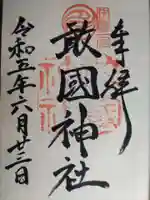 奉拝
敢國神社
令和五年六月廿三日